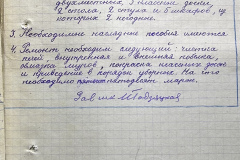 двухместных, 3 классн. доски,
2 стола, 2 стула и 5 шкафов, из
которых 2 негодны.
3. Необходимые наглядные пособия имеются
4. Ремонт необходим следующий: чистка
печей, внутренняя и внешняя побелка,
обмазка, покраска классных досок
и приведение в порядок уборных. На это
необходимо пятьдесят марок.
Зав. шк.